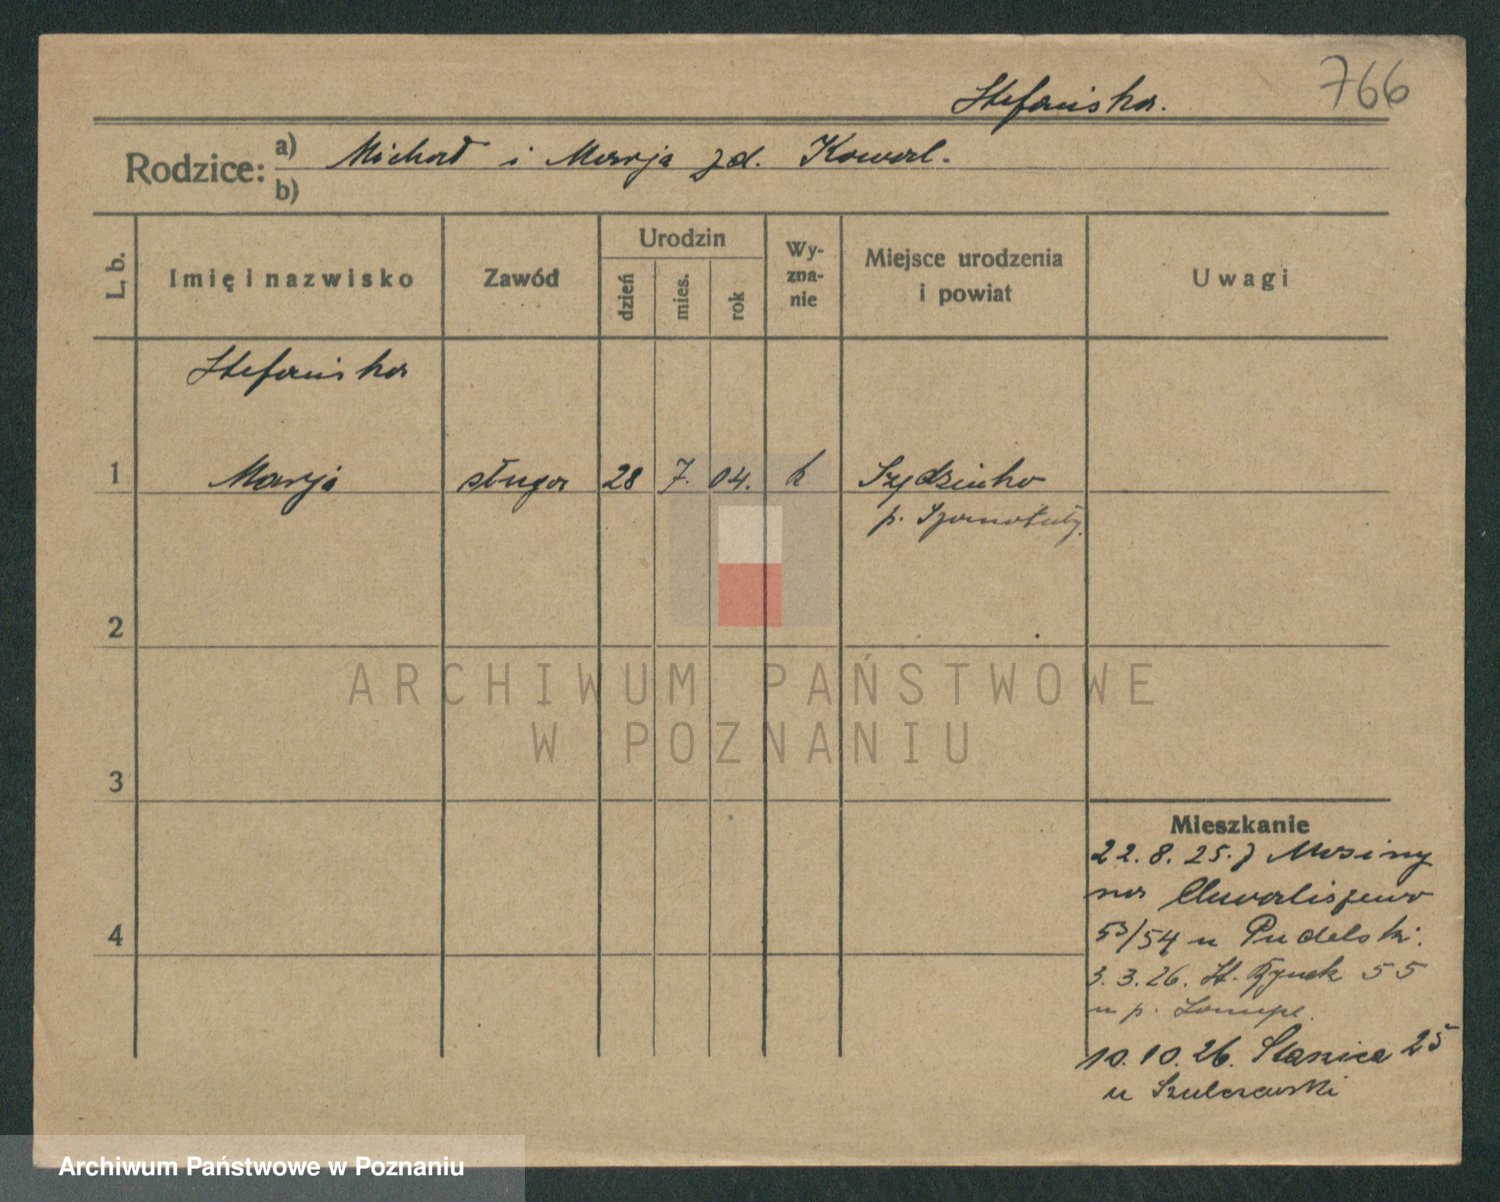 766
Stefańska.
Rodzice: a) Michał i Marja zd. Kowal.
b)
L. b.
Imię i nazwisko
Zawód
Urodzin
dzień
mies.
rok
Wy-
zna-
nie
Miejsce urodzenia
i powiat
Uwagi
Stefańska
1 Marja sługa 28 7. 04. k
p. Szamotuły.
2
3
4
ARCHIWUM PAŃSTWOWE
W POZNANIU
Mieszkanie
22.8.25. z Mosiny
na Chwaliszewo
53/54 u Pudelski.
3.3.26. St. Rynek 55
u p.
10.10.26. Staszica 25
u Szulczewski
Archiwum Państwowe w Poznaniu